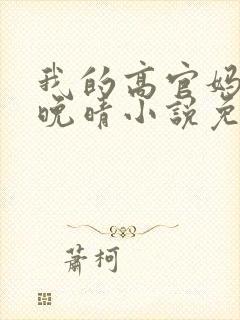 我的高官妈
晚晴小说免
萧柯